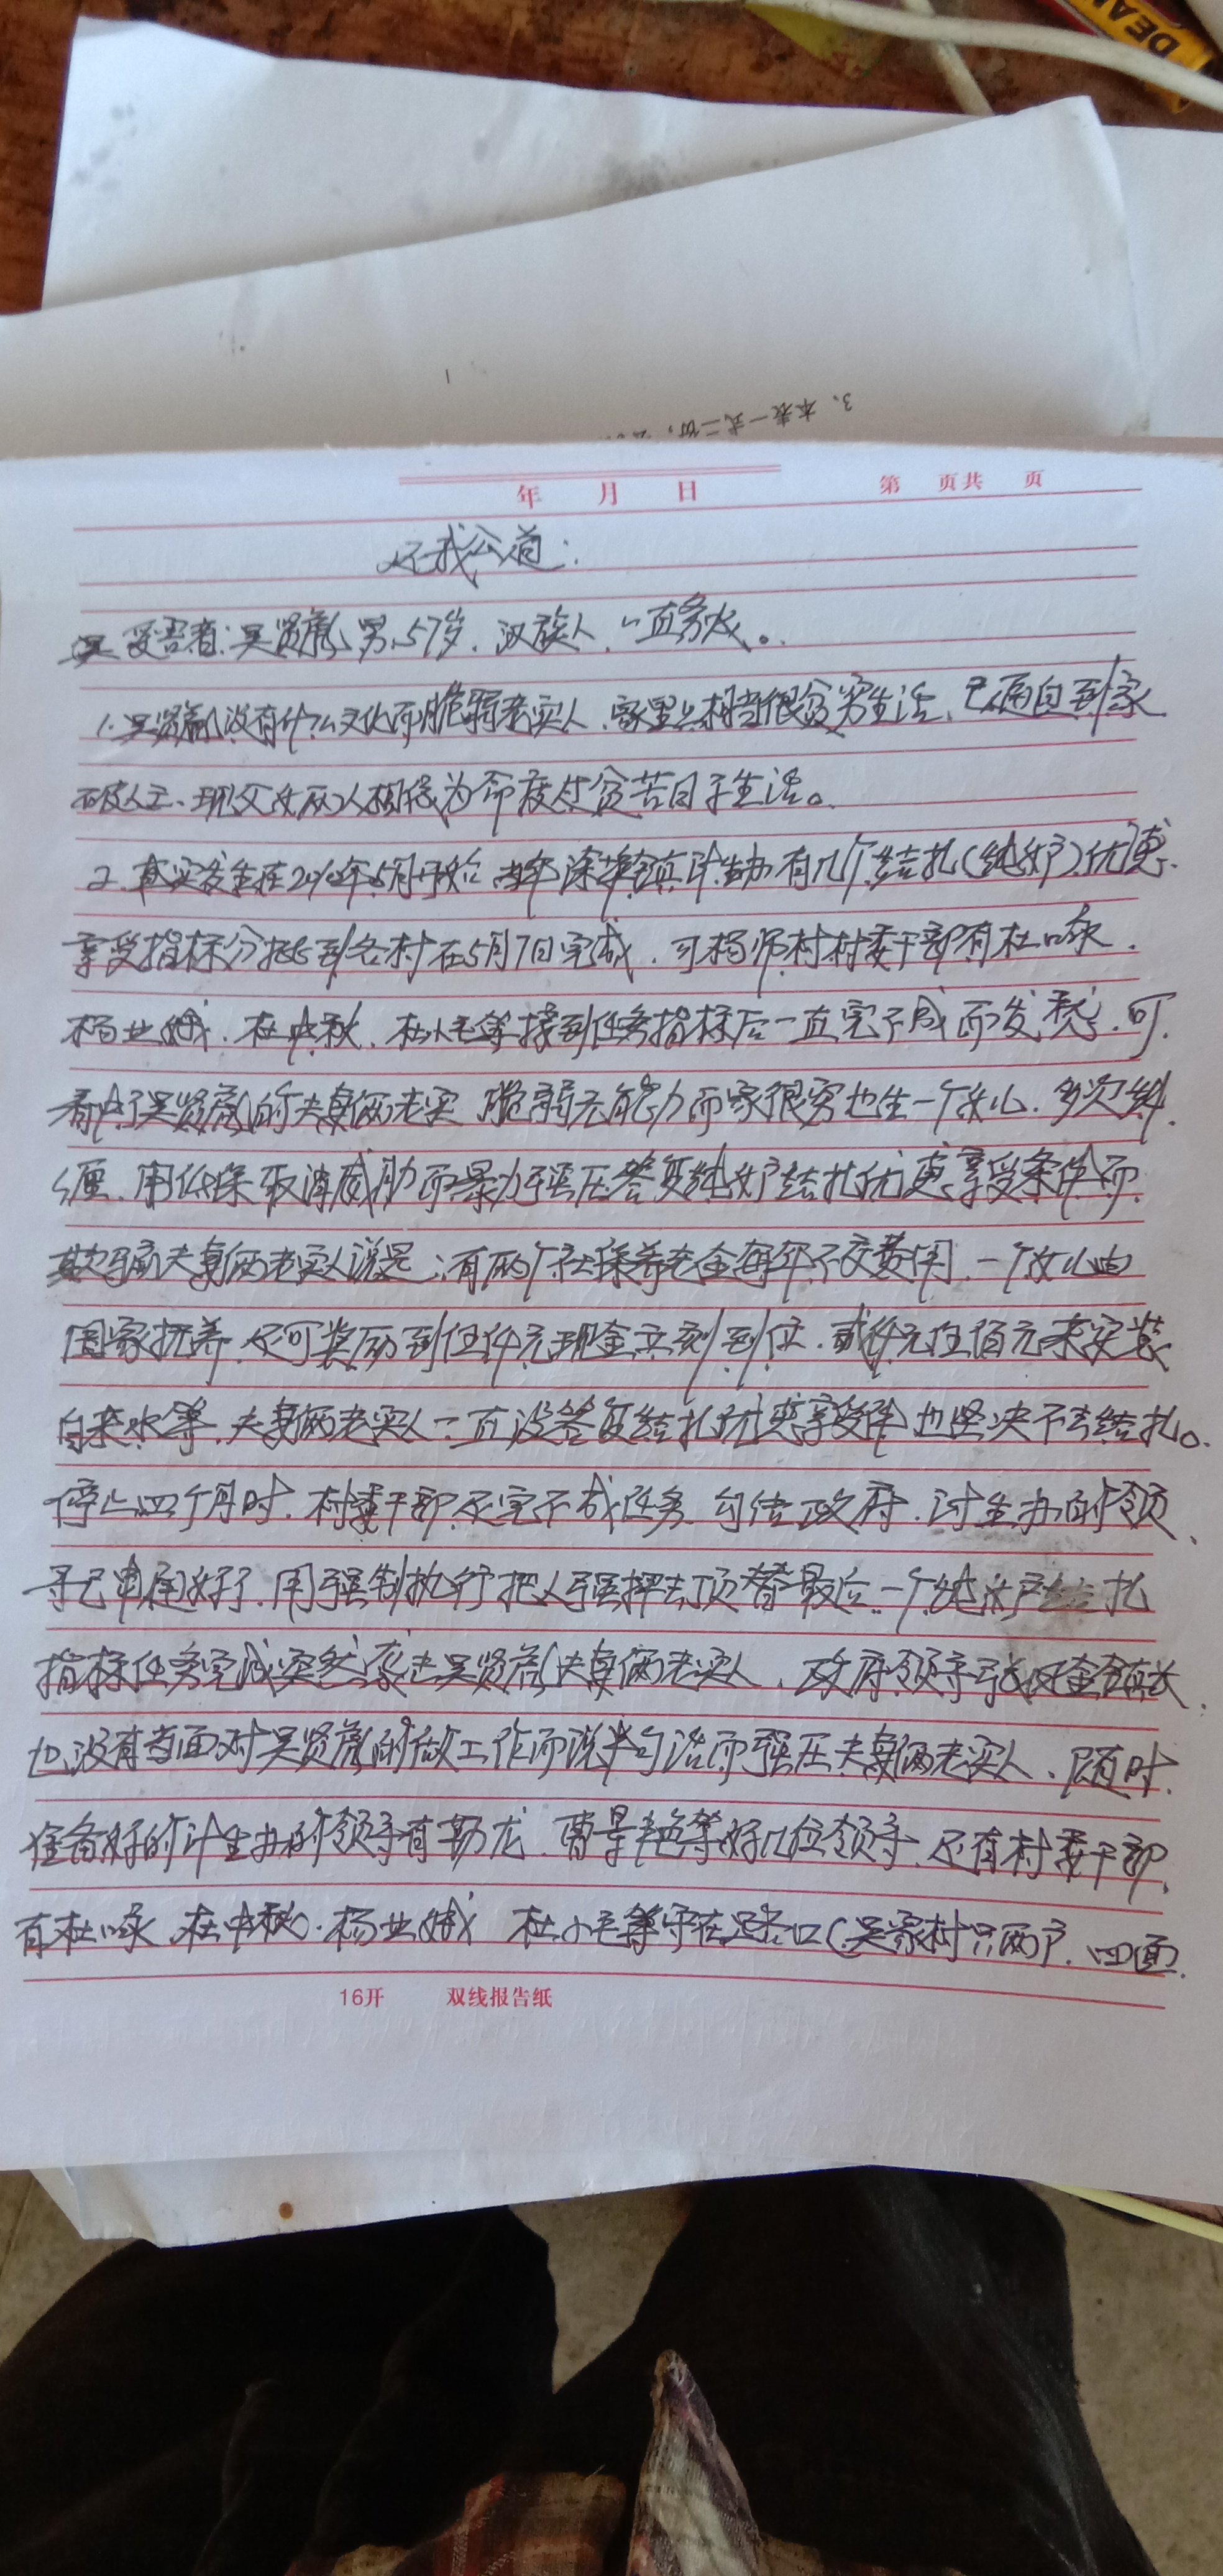 DEA
3、本表一式二份，
年 月 日
第 页共 页
还我公道：
受害者：吴贤彪、男、57岁、汉族人、一直务农。
1.吴贤彪没有什么文化而脆弱老实人、家里也相当很贫穷生活、已逼迫到家
破人亡、现父女两人相依为命度过贫苦日子生活。
2.其实发生在 年5月开始 当年 镇计生办有几个结扎（纯女户）优惠、
享受指标分批到各村在5月7日完成、可杨师村村委干部有杜咏、
杨业娥、杜中秋、杜小毛等接到任务指标后一直完不成而发愁、可
看中了吴贤彪的夫妻俩老实 脆弱无能力而家很穷也生一个女儿、多次纠
缠、用低保取消威胁而暴力强压答复纯女户结扎优惠享受条件而
欺骗夫妻俩老实人说是：有两个社保养老金每年不交费用、一个女儿由
国家抚养、还可奖励到伍仟元现金立刻到位、贰仟元伍佰元来安装
自来水等、夫妻俩老实人一直没答复结扎优惠享受 也坚决不去结扎。
停止四个月时、村委干部还完不成任务 勾结政府、计生办的领
导已串通好了、用强制执行把人强押去顶替最后一个纯女户结扎
指标任务完成突然袭击吴贤彪夫妻俩老实人、政府领导 金镇长
也没有当面对吴贤彪的做工作而说半句话而强压夫妻俩老实人、随时
准备好的计生办的领导有 龙、曹景艳等好几位领导、还有村委干部
有杜咏、杜中秋、杨业娥 杜小毛等守在路口（吴家村只两户、四面
16开 双线报告纸